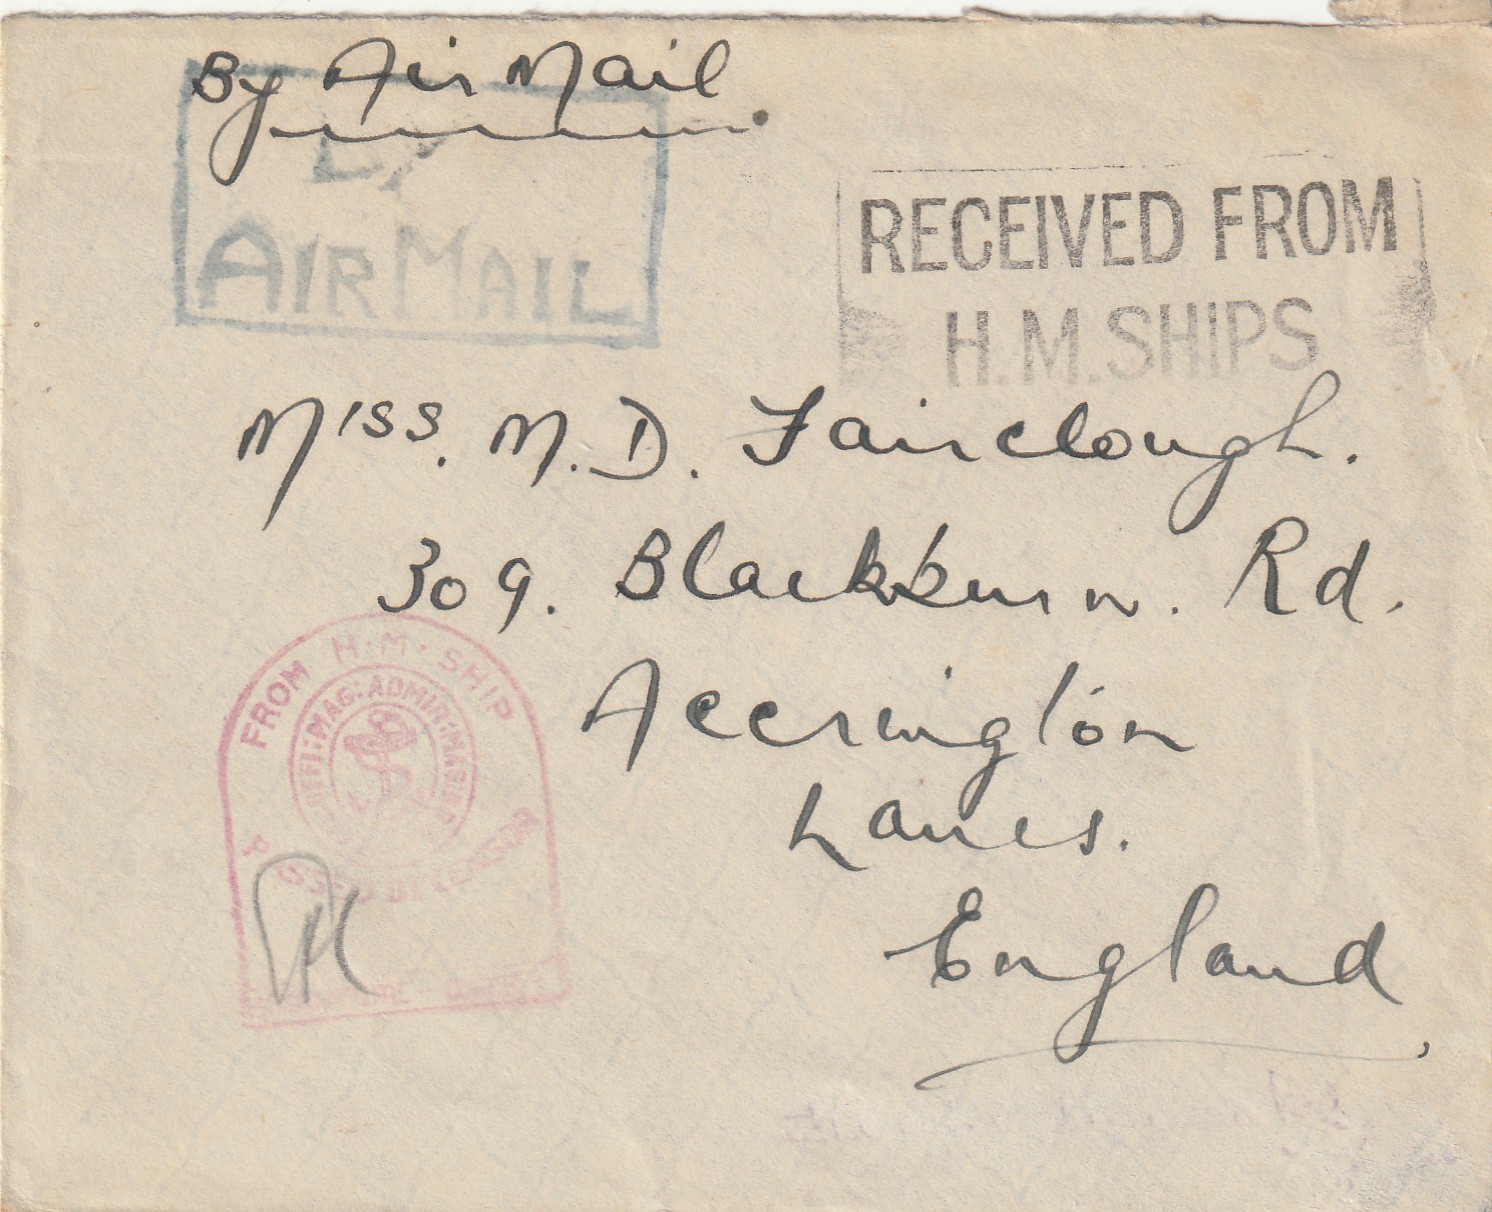 By Air Mail.
BY
AIR MAIL
RECEIVED FROM
H.M.SHIPS
Miss. M.D. Fairclough.
309. Blackburn. Rd.
Accrington
Lancs.
England
FROM H.M. SHIP
MAG: ADMIR:
PASSED BY CENSOR